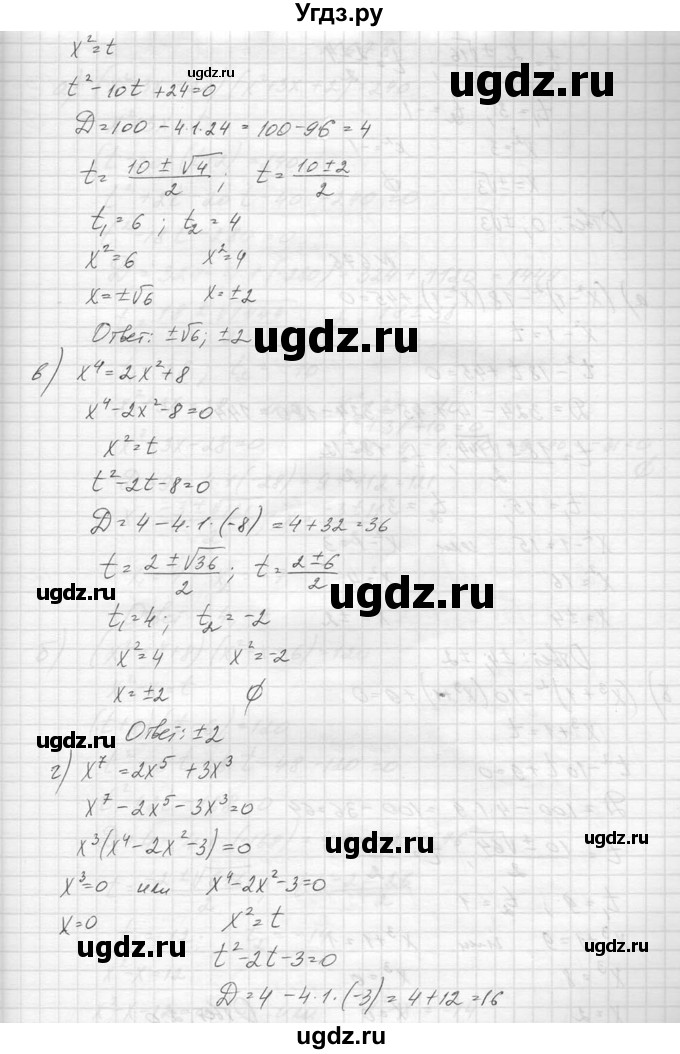 Угдз.ру
x²=t
ugdz.ru
ugdz.ru
t²-10t+24=0
D=100-4·1·24=100-96=4
ugdz.ru
t=(10±√4)/2; t=(10±2)/2
t₁=6; t₂=4
x²=6 x²=4
x=±√6 x=±2
Ответ: ±√6; ±2
ugdz.ru
в) x⁴=2x²+8
x⁴-2x²-8=0
x²=t
t²-2t-8=0
D=4-4·1·(-8)=4+32=36
t=(2±√36)/2; t=(2±6)/2
ugdz.ru
ugdz.ru
ugdz.ru
t₁=4; t₂=-2
x²=4 x²=-2
x=±2 ∅
Ответ: ±2
ugdz.ru
г) x⁷=2x⁵+3x³
x⁷-2x⁵-3x³=0
x³(x⁴-2x²-3)=0
ugdz.ru
ugdz.ru
x³=0 или x⁴-2x²-3=0
x=0 x²=t
ugdz.ru
ugdz.ru
t²-2t-3=0
D=4-4·1·(-3)=4+12=16
ugdz.ru
ugdz.ru